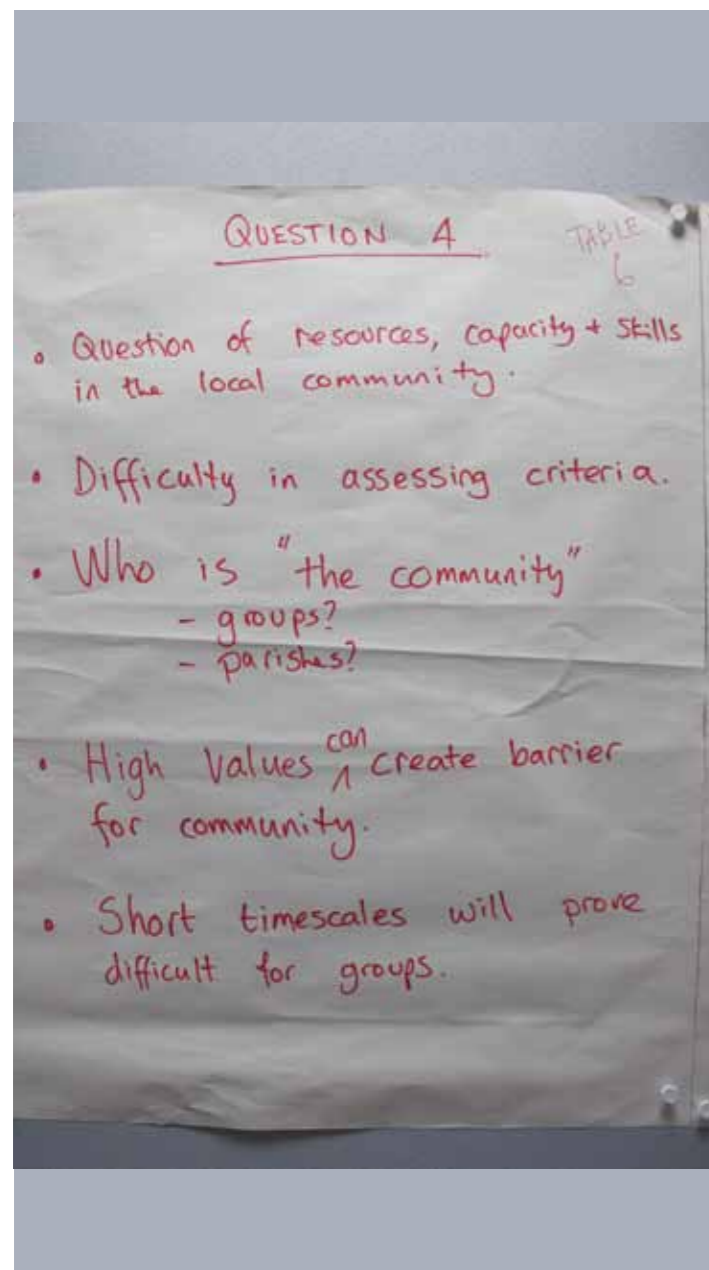 QUESTION 4
TABLE
6
• Question of resources, capacity + skills
in the local community.
• Difficulty in assessing criteria.
• Who is "the community"
- groups?
- parishes?
• High values can create barrier
for community.
• Short timescales will prove
difficult for groups.